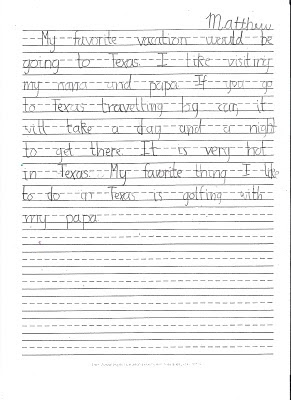 Matthew
My favorite vacation would be
going to Texas. I like visiting
my nana and papa. If you go
to Texas travelling by car, it
will take a day and a night
to get there. It is very hot
in Texas. My favorite thing I like
to do at Texas is golfing with
my papa.